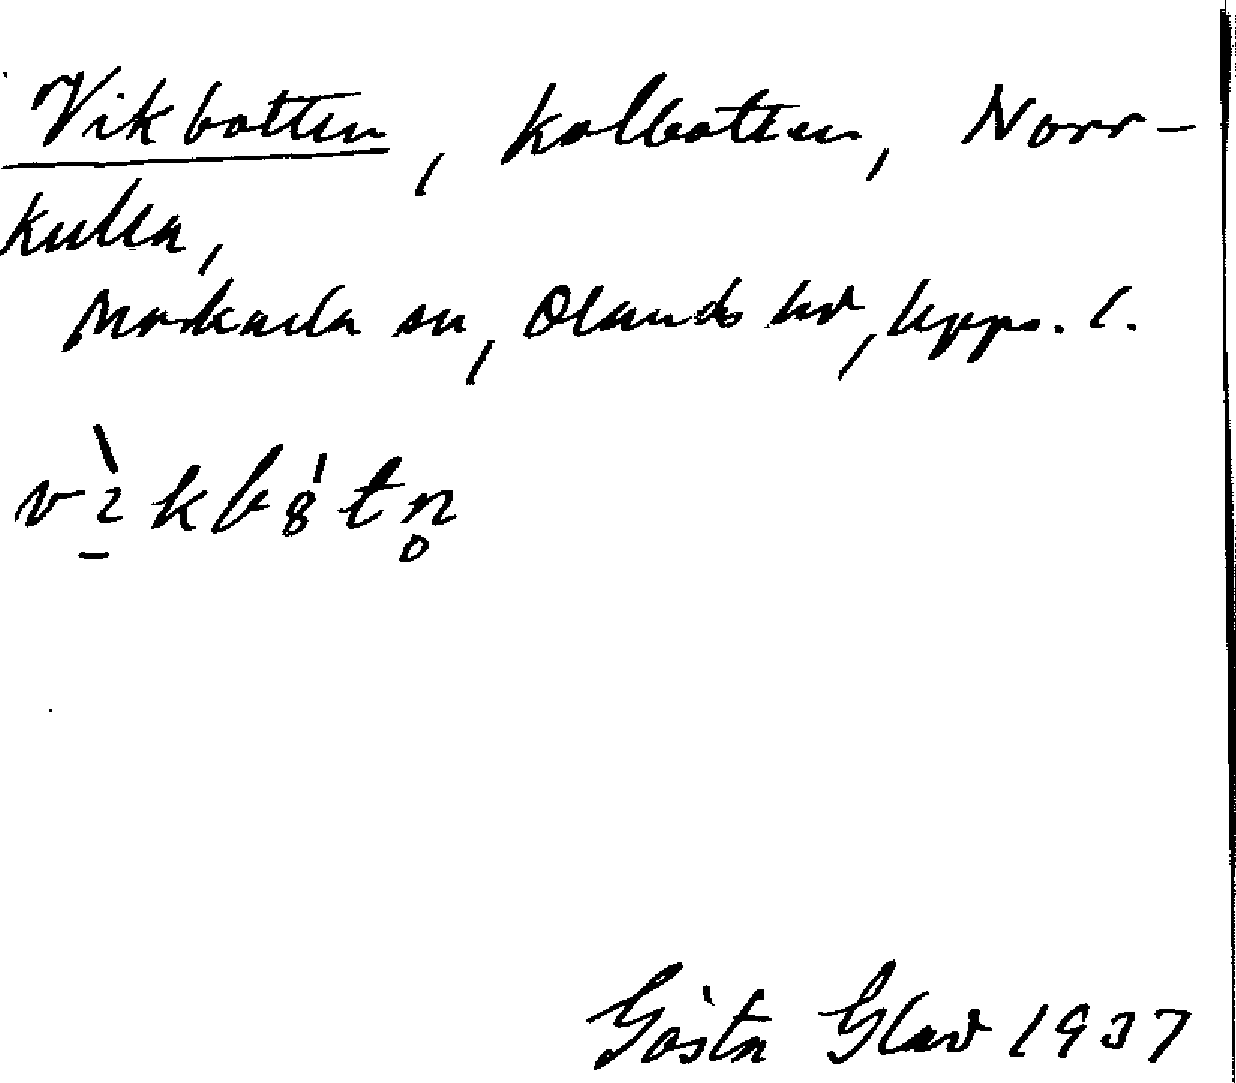 Vikbotten, kolbotten, Norr-
kulla,
Morkarla sn, Olands hd, Upps. l.
Gösta Glad 1937